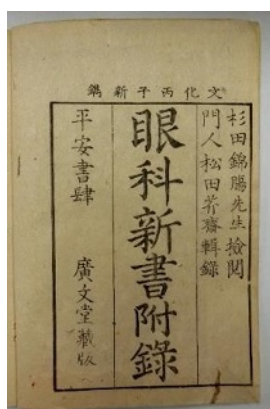 文化丙子新鐫
杉田錦腸先生撿閲
門人松田芥齋輯錄
眼科新書附錄
平安書肆 廣文堂藏版